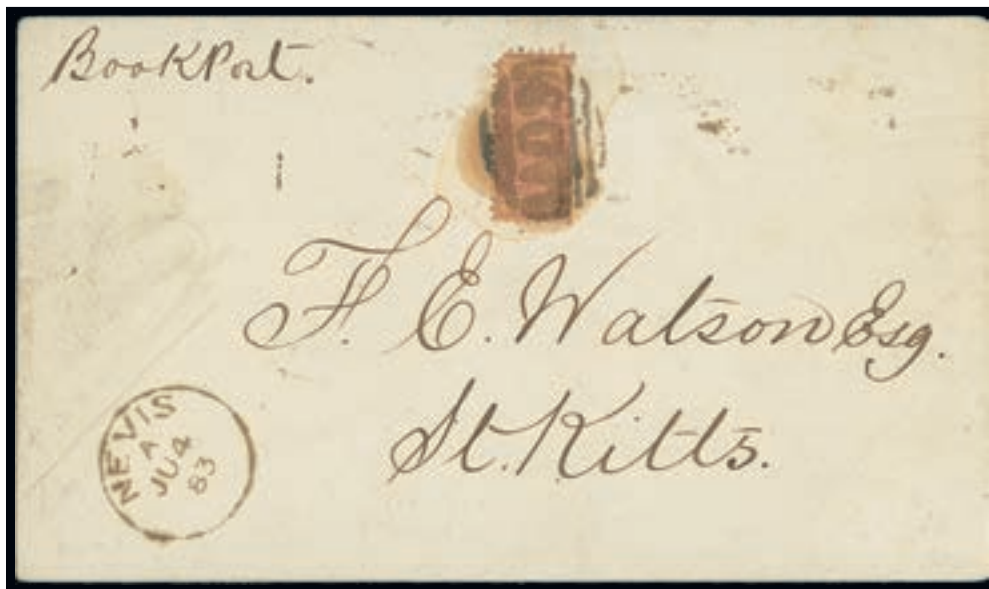 Book Post.
F. E. Watson Esq.
St. Kitts.
NEVIS
A
JU 4
83